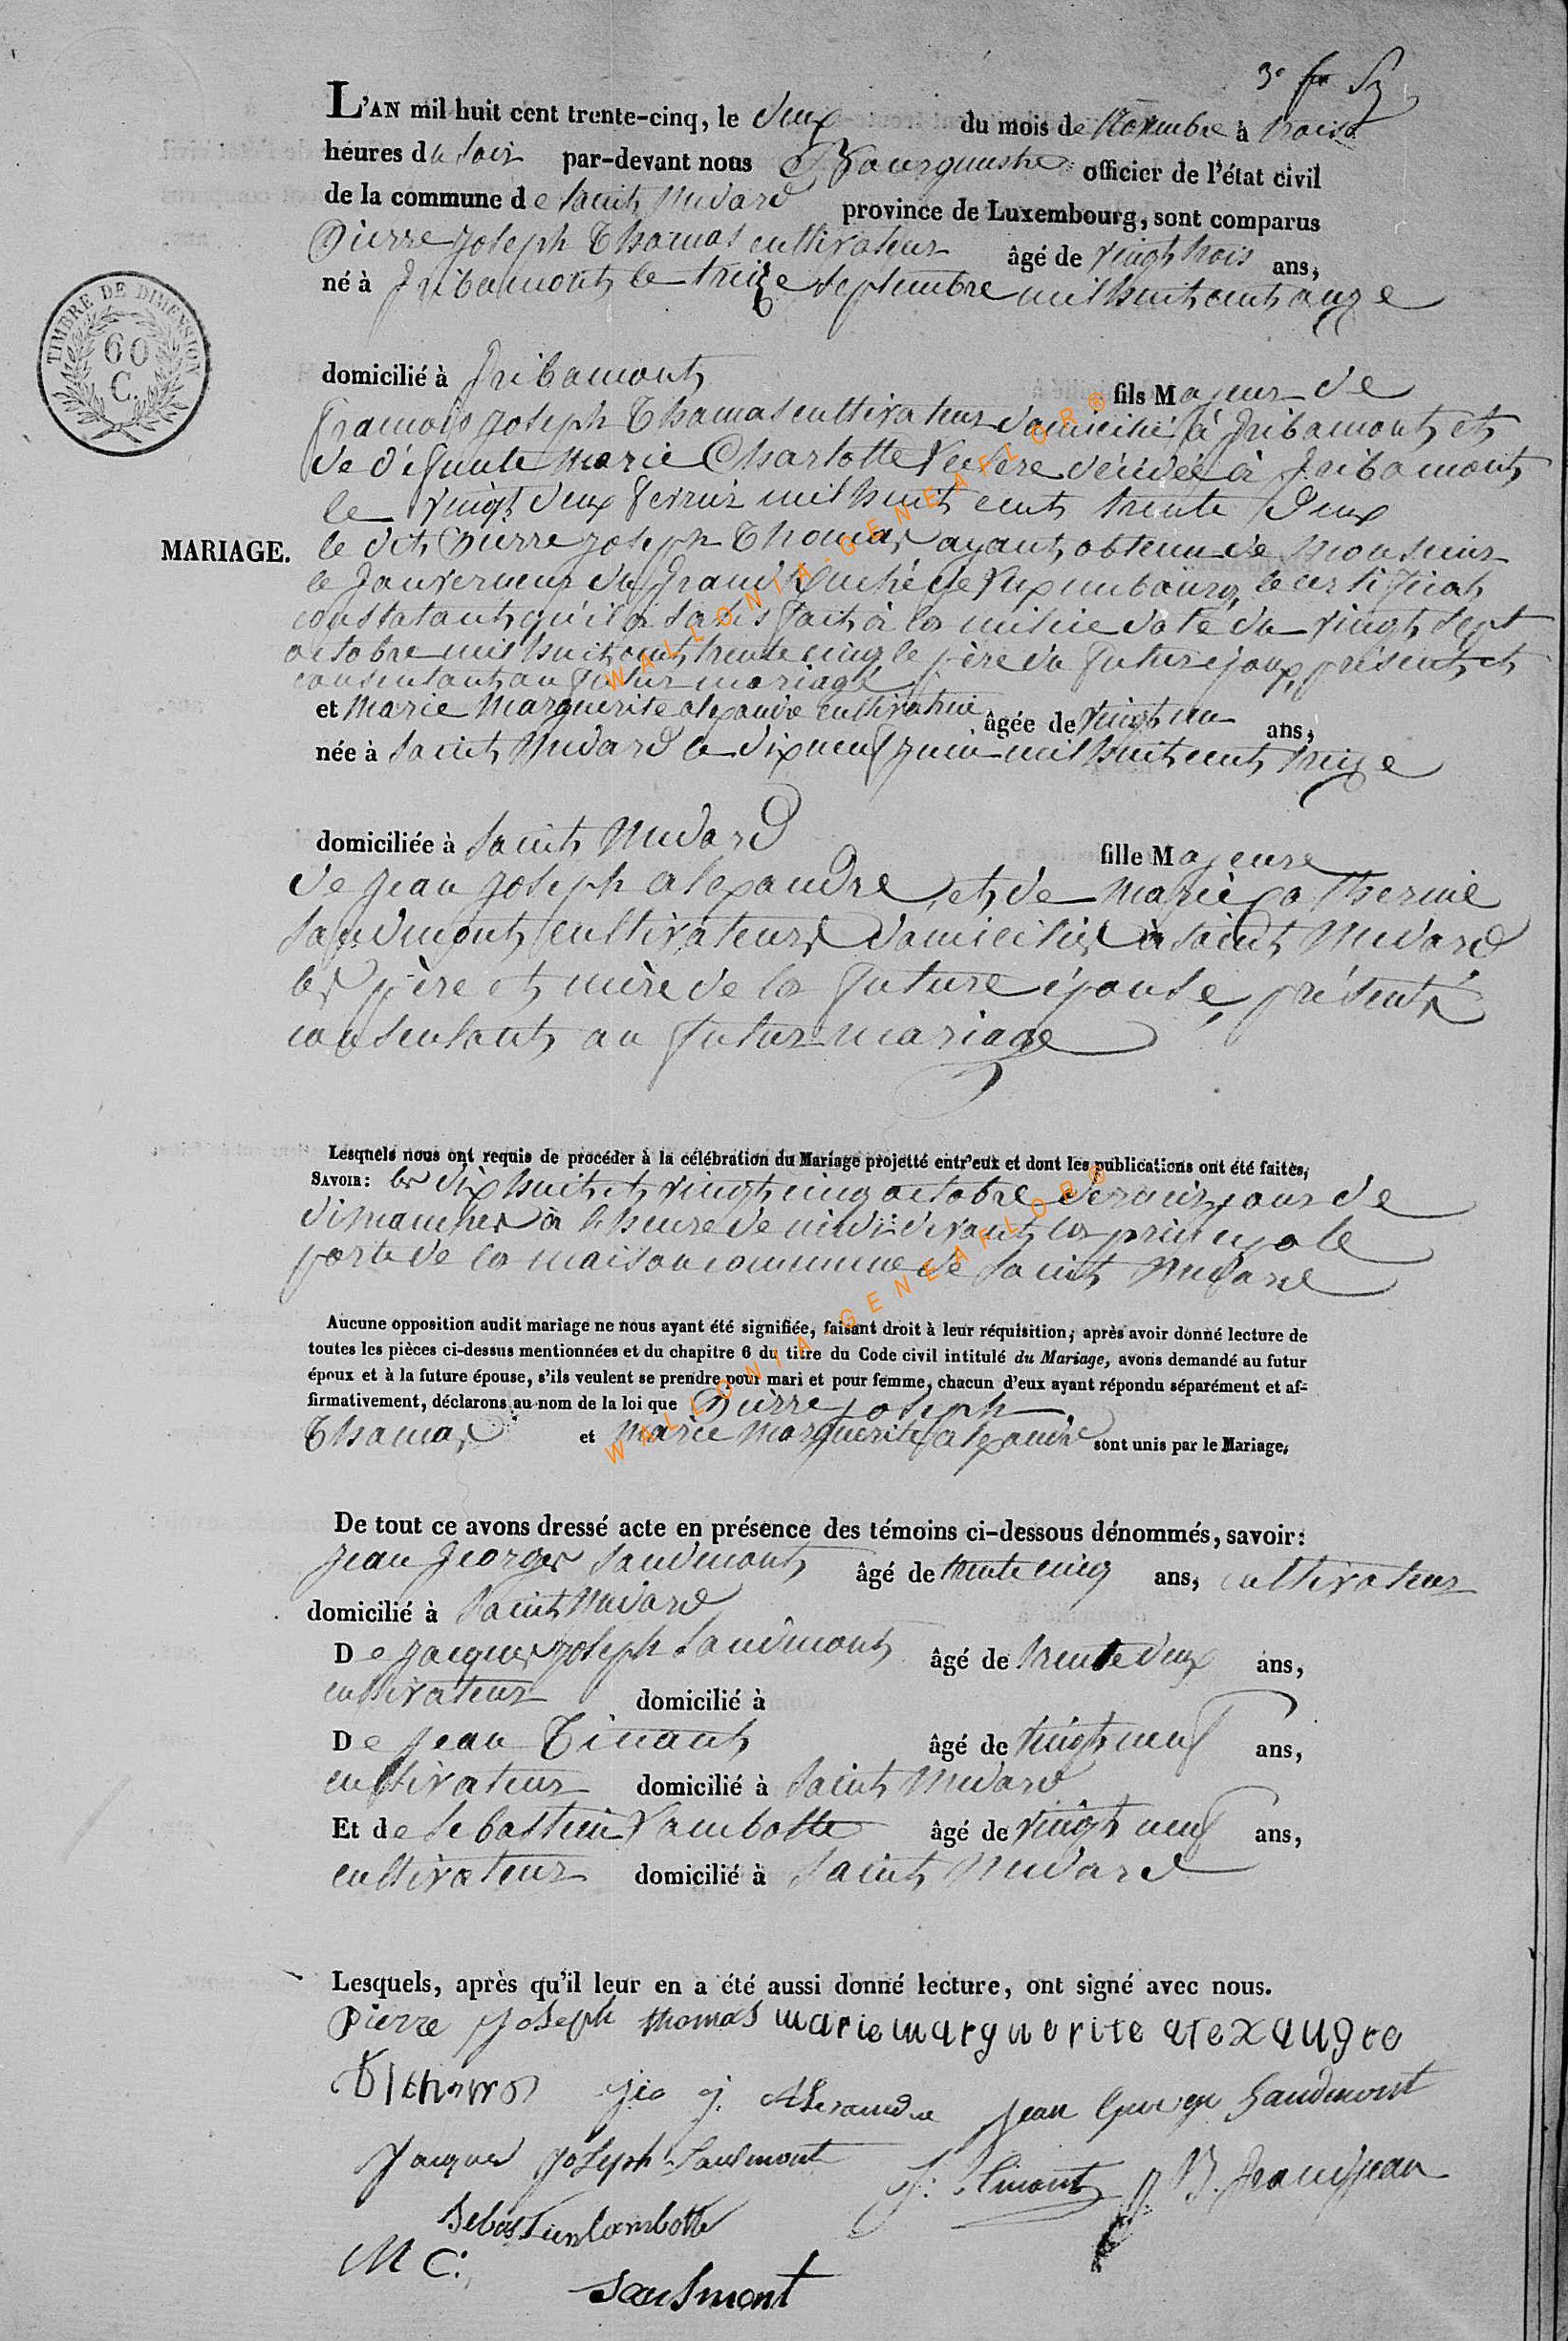 3e
L'AN mil huit cent trente-cinq, le deux du mois de Novembre à trois
heures du soir par-devant nous Bourgumestre officier de l'état civil
de la commune de saint Medard province de Luxembourg, sont comparus
Pierre joseph Thomas cultivateur âgé de vingt trois ans,
né à gribomont le treize septembre mil huit cent onze
domicilié à gribomont fils Majeur de
francois joseph Thomas cultivateur domicilié à gribomont et
de défunte marie Charlotte décédée à gribomont
le vingt deux fevrier mil huit cent trente deux
MARIAGE.
le dit Pierre joseph Thomas ayant obtenu de monsieur
le gouverneur du grand Duché de Luxembourg le certificat
constatant qu'il a satisfait à la milice daté du vingt sept
octobre mil huit cent trente cinq le père du futur époux présent et
consentant au futur mariage
et marie marguerite alexandre cultivatrice âgée de vingt un ans,
née à saint Medard le dix neuf juin mil huit cent treize
domiciliée à saint Medard fille Majeure
de jean joseph alexandre, et de marie catherine
saudmont cultivateurs domiciliés à saint Medard
les père et mère de la future épouse, présents
consentant au futur mariage
Lesquels nous ont requis de procéder à la célébration du Mariage projetté entr'eux et dont les publications ont été faites,
SAVOIR: les dix huit et vingt cinq octobre dernier jour de
dimanches à l'heure de midi devant la principale
porte de la maison commune de saint Medard
Aucune opposition audit mariage ne nous ayant été signifiée, faisant droit à leur réquisition, après avoir donné lecture de
toutes les pièces ci-dessus mentionnées et du chapitre 6 du titre du Code civil intitulé du Mariage, avons demandé au futur
époux et à la future épouse, s'ils veulent se prendre pour mari et pour femme, chacun d'eux ayant répondu séparément et af-
firmativement, déclarons au nom de la loi que Pierre joseph
Thomas et marie marguerite alexandre sont unis par le Mariage,
De tout ce avons dressé acte en présence des témoins ci-dessous dénommés, savoir:
jean georges saudmont âgé de trente cinq ans, cultivateur
domicilié à saint Medard
De jacques joseph saudmont âgé de trente deux ans,
cultivateur domicilié à
De jean Tinant âgé de vingt neuf ans,
cultivateur domicilié à saint Medard
Et de sebastien Lambotte âgé de vingt neuf ans,
cultivateur domicilié à saint Medard
Lesquels, après qu'il leur en a été aussi donné lecture, ont signé avec nous.
pierre joseph thomas marie marguerite alexandre
j. Alexandre jean saudmont
jacques joseph saudmont
sebastien lambotte
M C:
saudmont
TIMBRE DE DIMENSION
60
C.
WALLONIA-GENEAFLOR®
WALLONIA-GENEAFLOR®